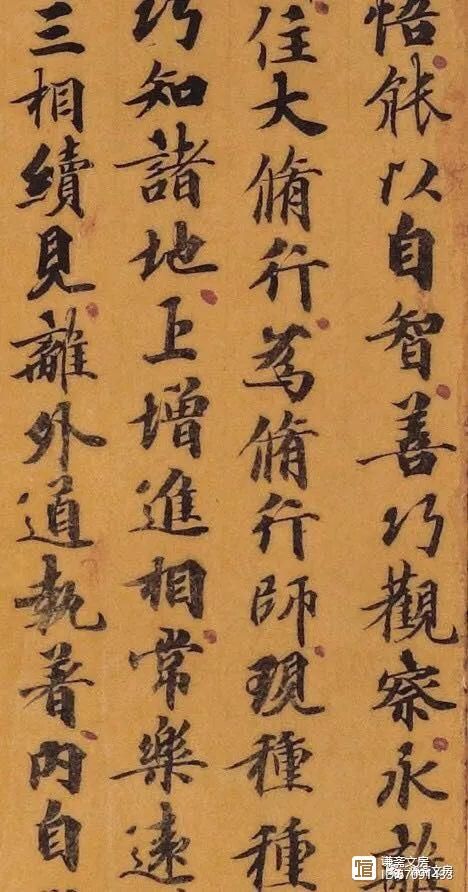 悟能以自智善巧觀察永
住大脩行為脩行師現種種
巧知諸地上增進相常樂遠
三相續見離外道執著內自
谦斋文房